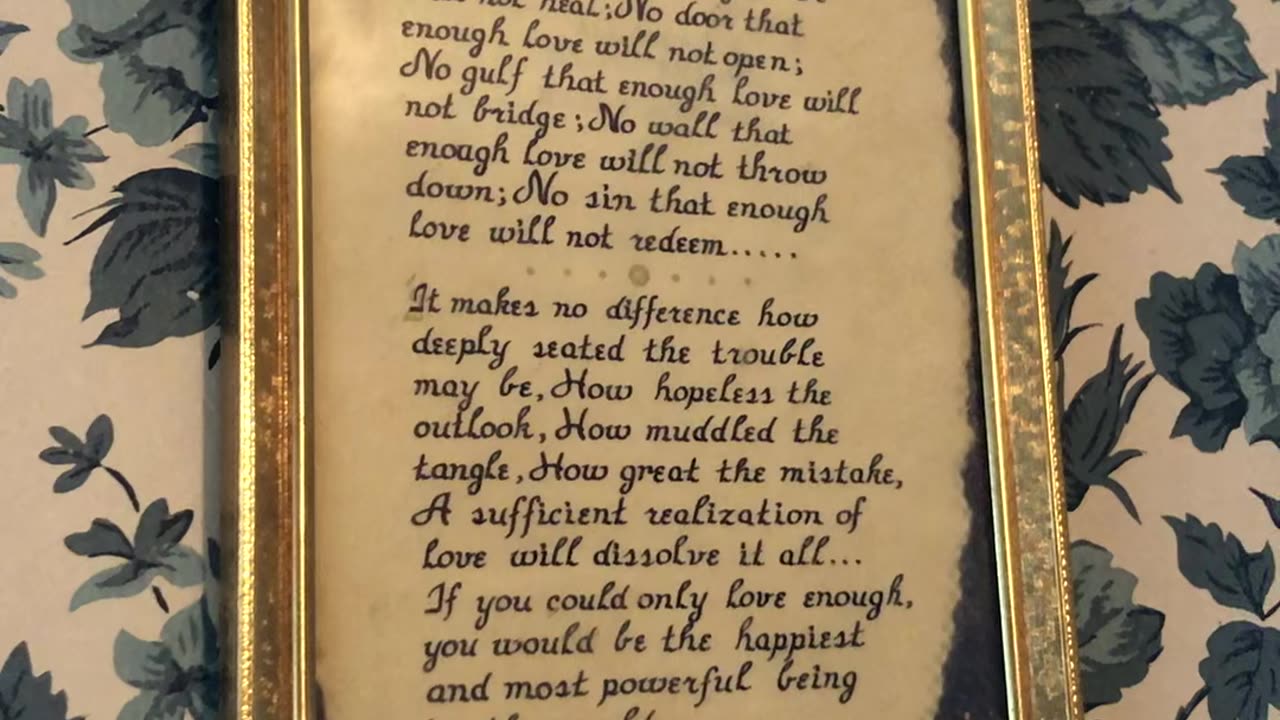 not heal; No door that
enough love will not open;
No gulf that enough love will
not bridge; No wall that
enough love will not throw
down; No sin that enough
love will not redeem.....
It makes no difference how
deeply seated the trouble
may be, How hopeless the
outlook, How muddled the
tangle, How great the mistake,
A sufficient realization of
love will dissolve it all...
If you could only love enough,
you would be the happiest
and most powerful being